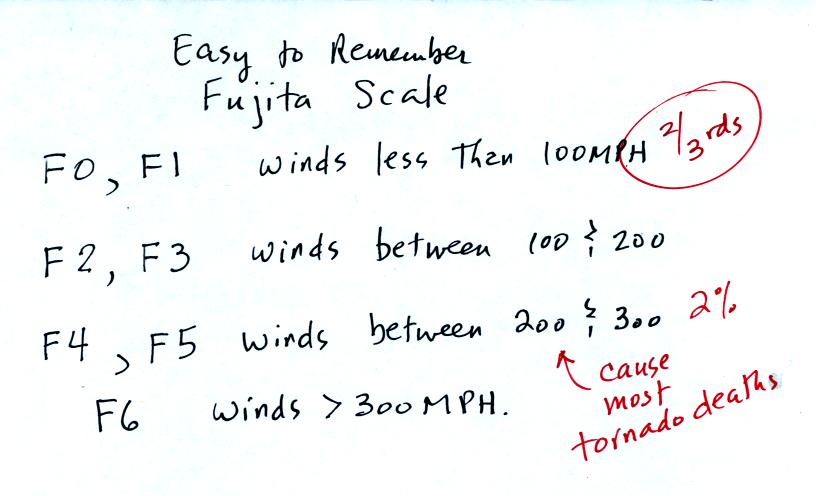 Easy to Remember
Fujita Scale
F0, F1 winds less than 100MPH 2/3rds
F2, F3 winds between 100 & 200
F4, F5 winds between 200 & 300 2%
cause
most
tornado deaths
F6 winds > 300 MPH.